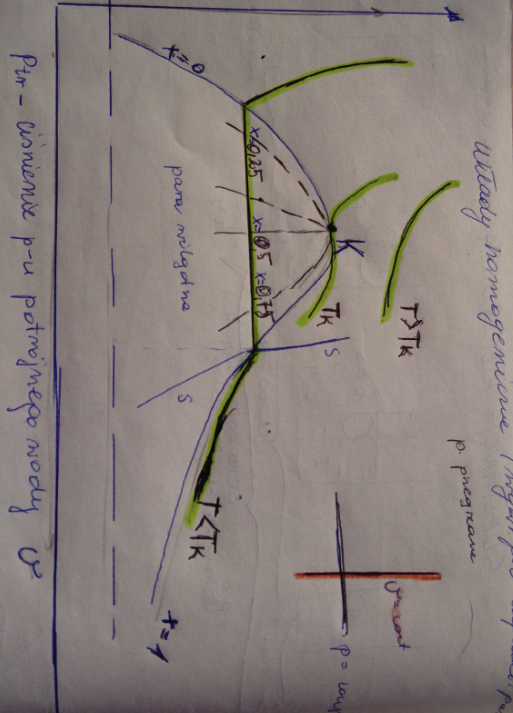 Układy homogeniczne
p. przegrzana
v=const
p = 
T>Tk
K
Tk
x=0
x=0,25
x=0,5
x=0,75
para wilgotna
S
S
T<Tk
x=1
Ptr - ciśnienie p-u potrójnego wody
v